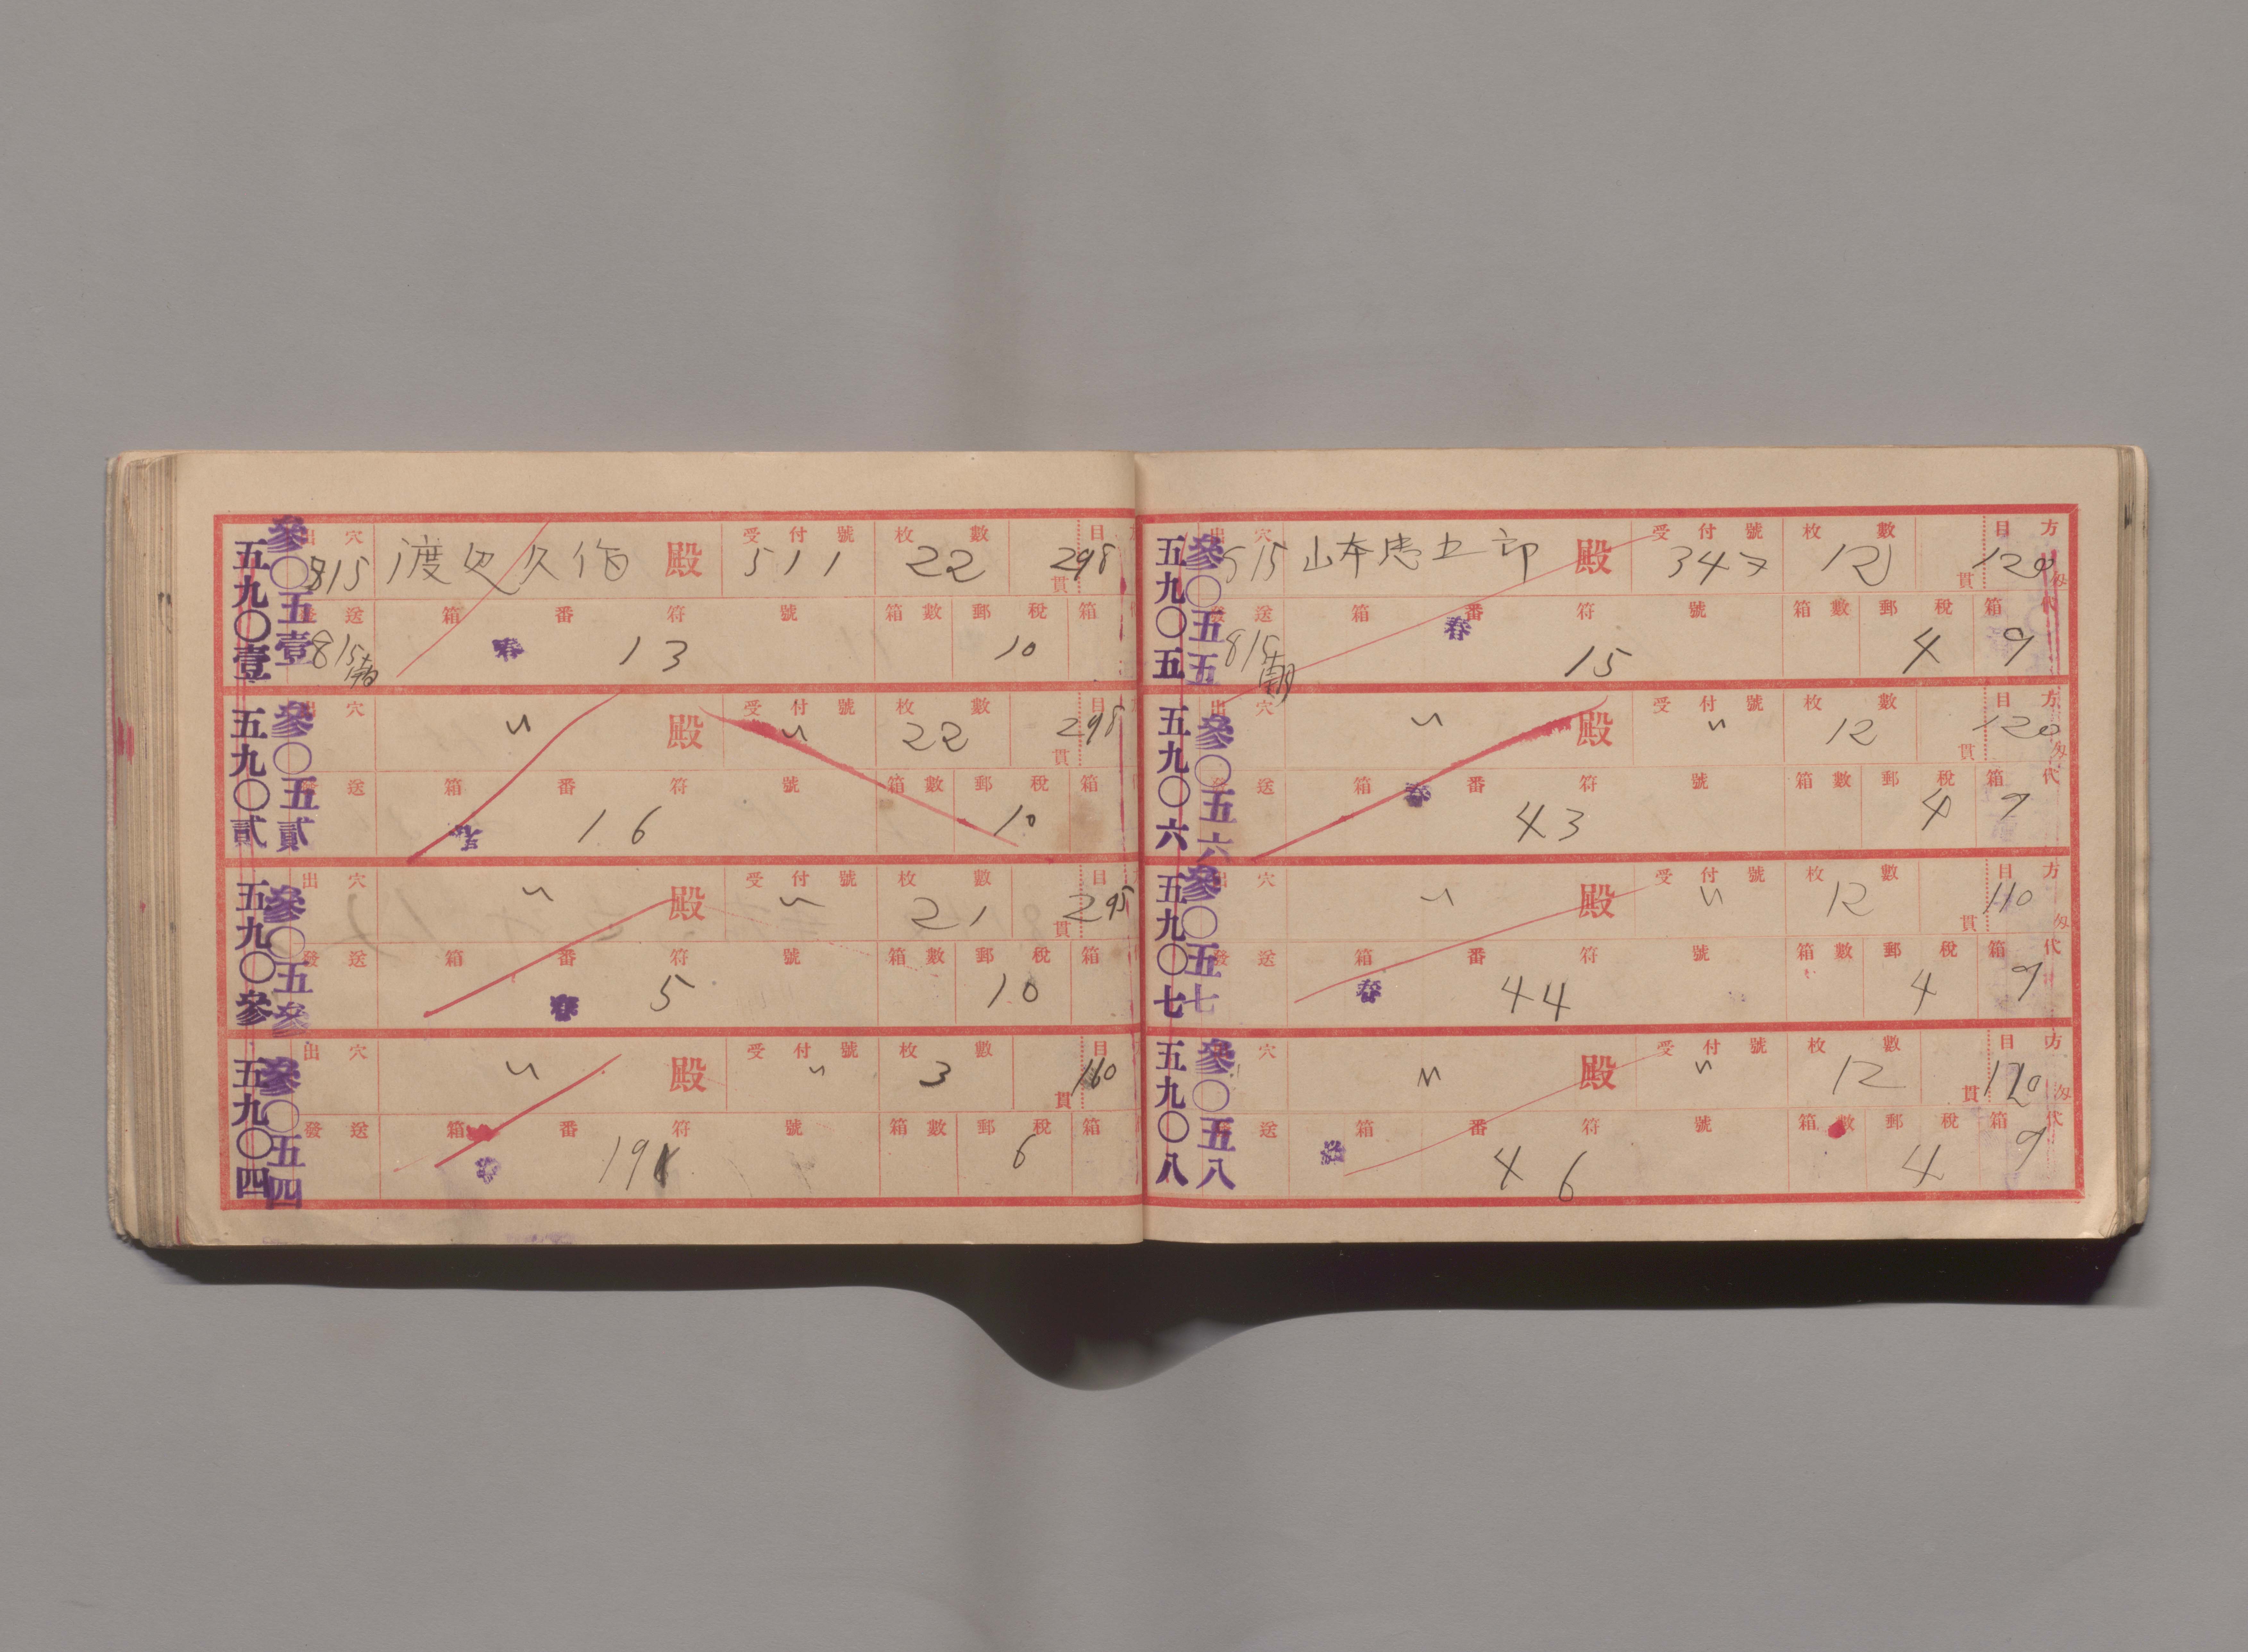 五九〇壹 參〇五壹
出穴 815 渡辺久作 殿 受付號 511 枚數 22 目 貫 298
發送 815 朝 箱番符號 春 13 箱數 郵稅 10 箱
五九〇貳 參〇五貳
出穴 〃 殿 受付號 〃 枚數 22 目 貫 298
發送 箱番符號 春 16 箱數 郵稅 10 箱
五九〇參 參〇五參
出穴 〃 殿 受付號 〃 枚數 21 目 貫 295
發送 箱番符號 春 5 箱數 郵稅 10 箱
五九〇四 參〇五四
出穴 〃 殿 受付號 〃 枚數 3 目 貫 160
發送 箱番符號 春 箱數 郵稅 6 箱
五九〇五 參〇五五
出穴 815 山本忠五郎 殿 受付號 347 枚數 12 方目 貫 120 匁
發送 815 朝 箱番符號 春 15 箱數 郵稅 4 箱代 9
五九〇六 參〇五六
出穴 〃 殿 受付號 〃 枚數 12 方目 貫 120 匁
發送 箱番符號 春 43 箱數 郵稅 4 箱代 9
五九〇七 參〇五七
出穴 〃 殿 受付號 〃 枚數 12 方目 貫 110 匁
發送 箱番符號 春 44 箱數 郵稅 4 箱代 9
五九〇八 參〇五八
出穴 〃 殿 受付號 〃 枚數 12 方目 貫 120 匁
發送 箱番符號 春 46 箱數 郵稅 4 箱代 9